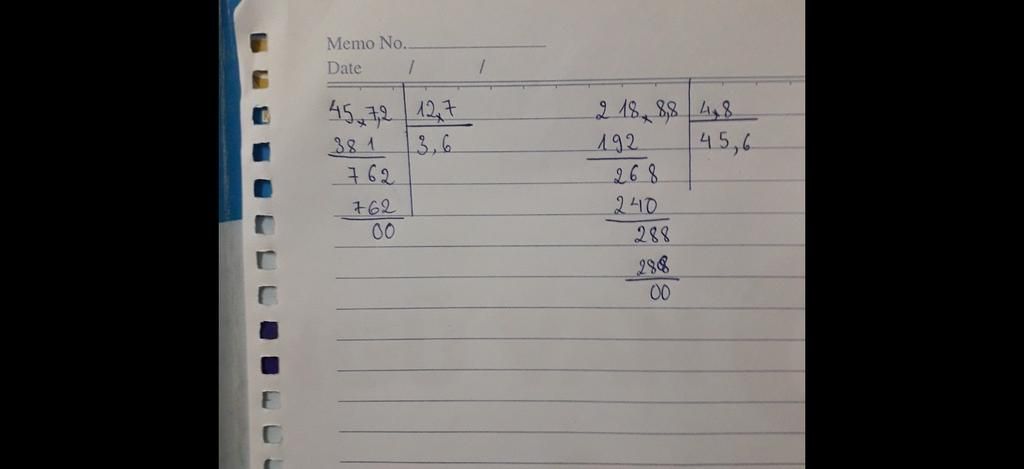 Memo No.
Date / /
45,7,2 12,7
381 3,6
762
762
00
218,8,8 4,8
192 45,6
268
240
288
288
00